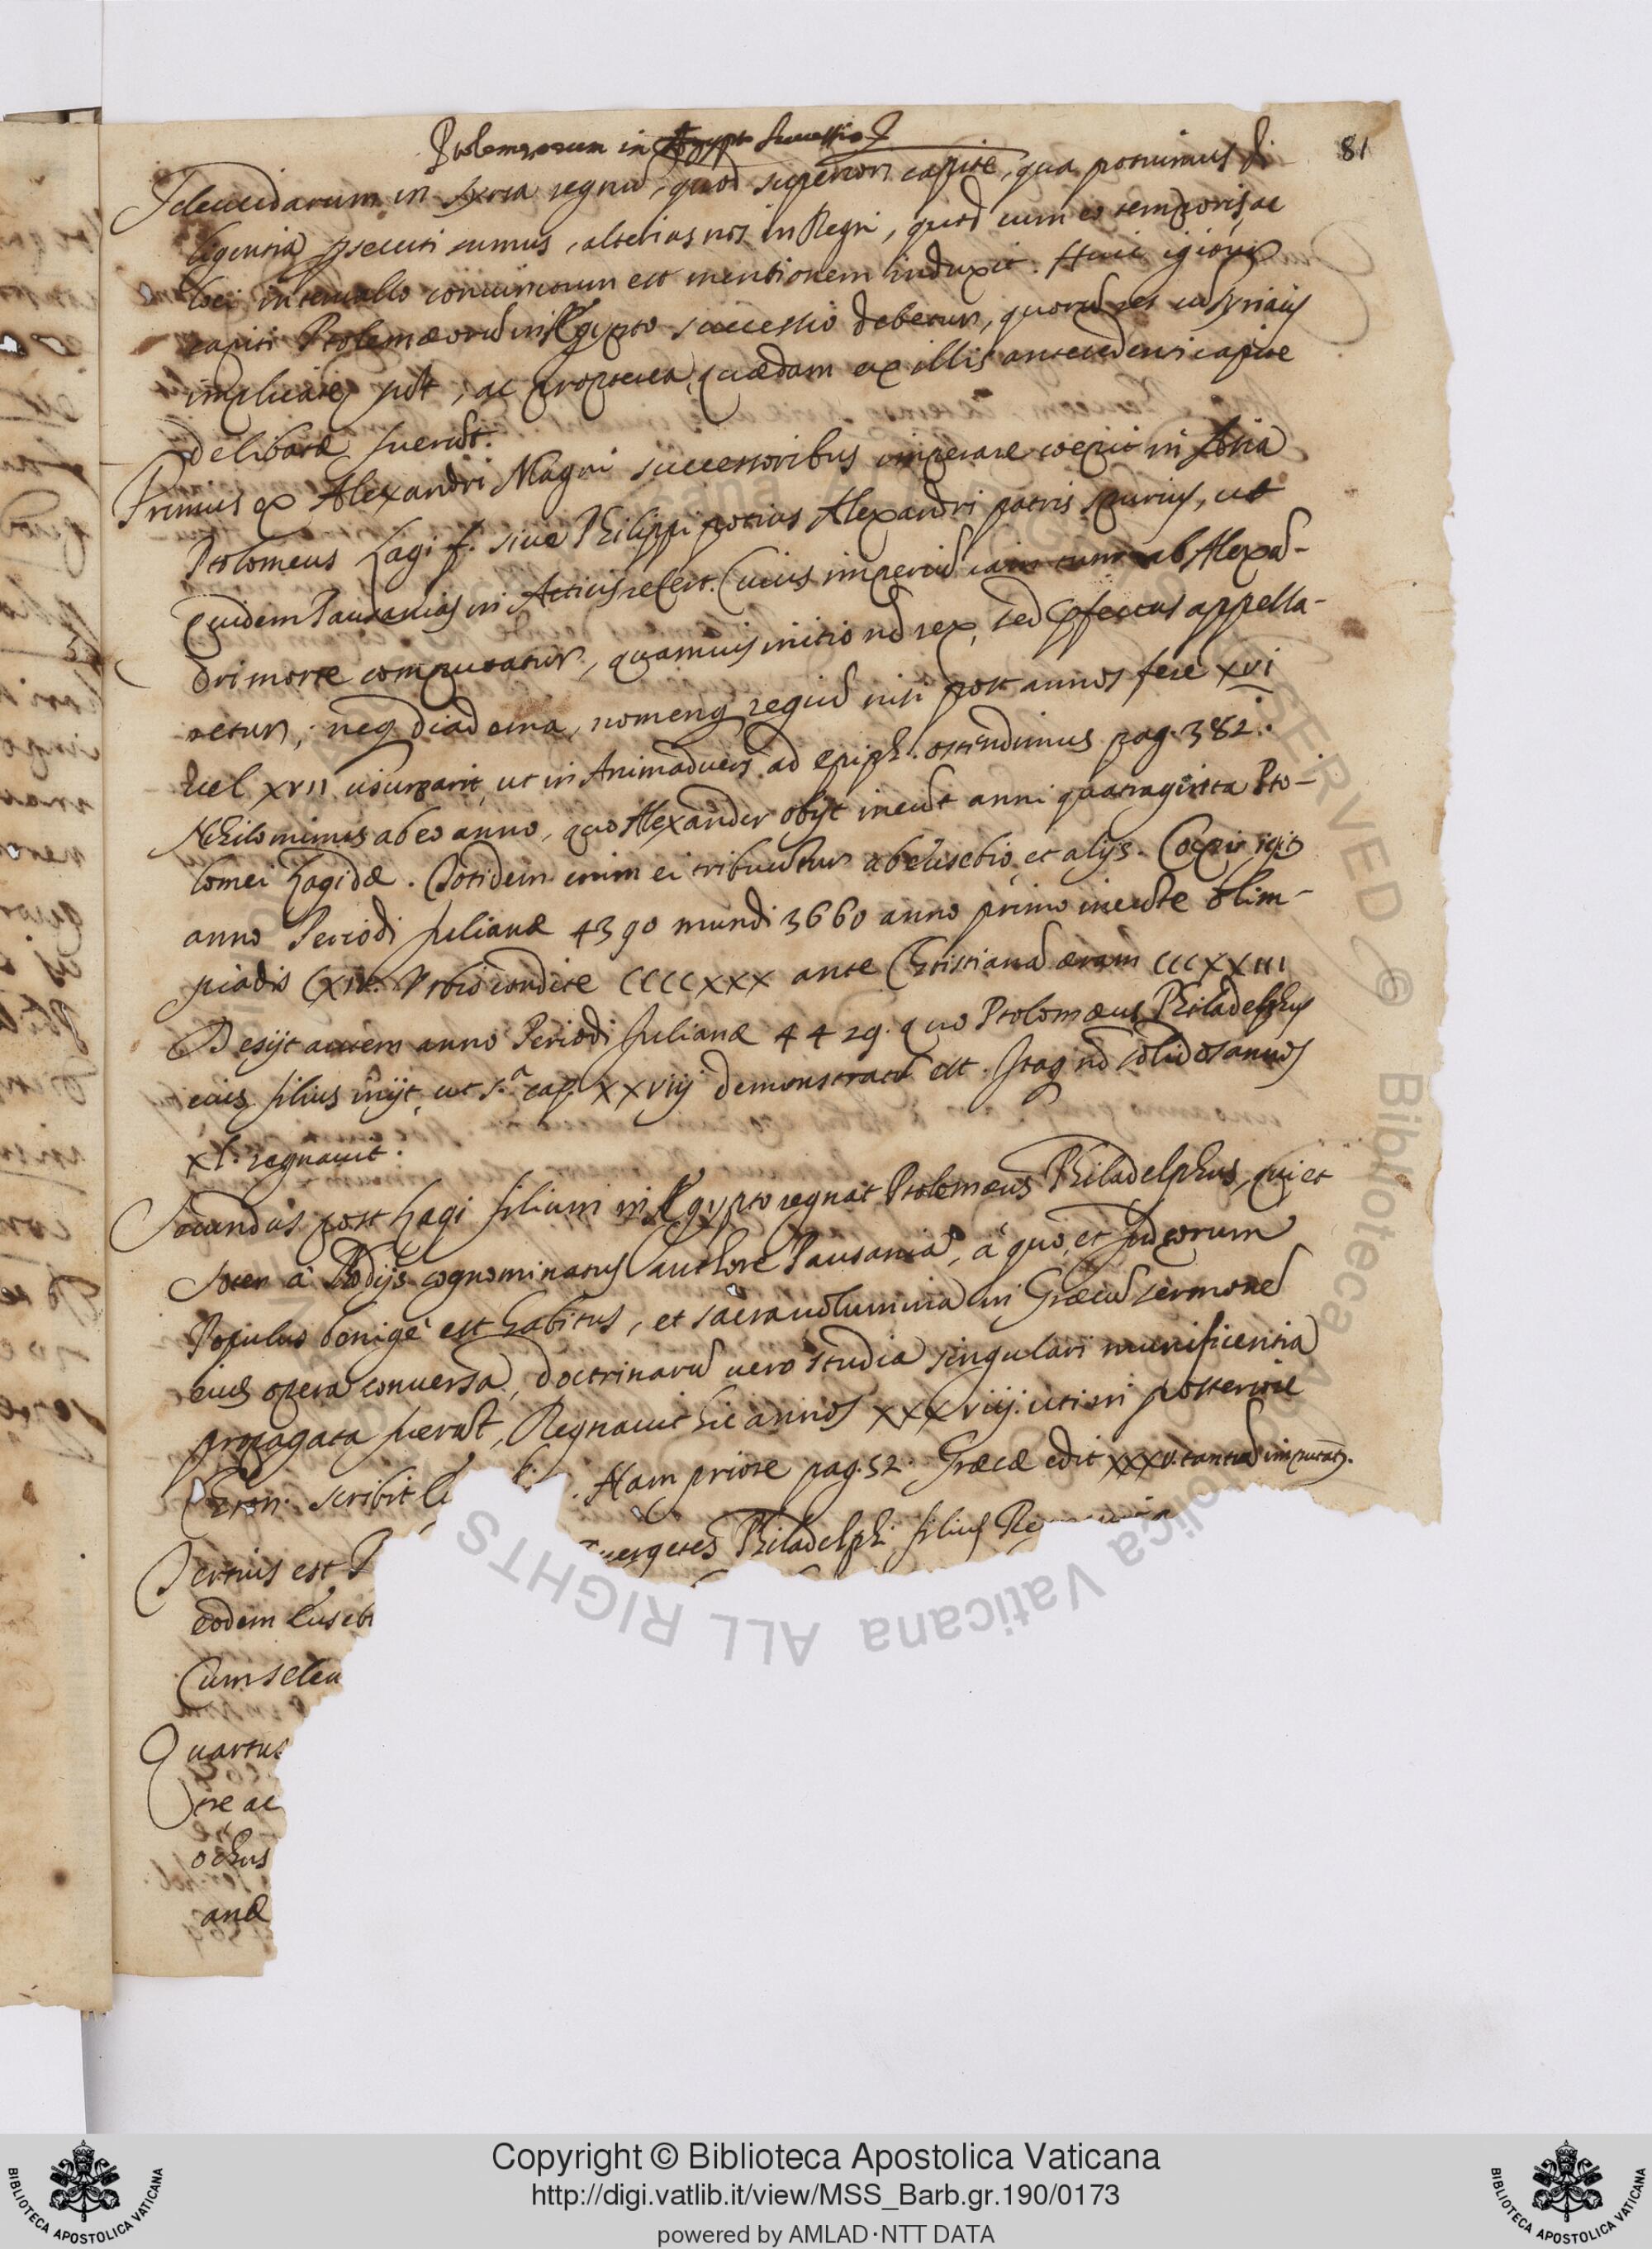 81
Ptolemæorum in Ægypto Successio
Seleucidarum in Syria regnũ, quod superiori capite, qua potuimus di
ligentia psecuti sumus, alterius nos in Regni, quod cum eo temporis, ac
loci interuallo coniunctum est mentionem induxit. Huic igitur
capiti Ptolemæorũ in Ægypto successio debetur, quorũ res cũ Syriacis
implicatę sũt, ac propterea quædam ex illis antecedenti capite
delibatæ fuerũt.
Primus ex Alexandri Magni successoribus imperare coepit in Asia
Ptolomeus Lagi f. siue Philippi potius Alexandri patris spurius, ut
quidem Pausanias in Atticis refert. Cuius imperiũ iam tum ab Alexã-
dri morte computatur, quamuis initio nõ rex, sed pfectus appella-
retur, neq diadema, nomenq regiũ nisi post annos fere xvi
uel xvii usurparit, ut in Animaduers. ad Epiph. ostendimus pag. 382.
Nihilominus ab eo anno, quo Alexander obijt ineũt anni quatraginta Pto-
lomei Lagidæ. Totidem enim ei tribuũtur ab Eusebio, et alijs. Coepit igit
anno Periodi Julianæ 4390 mundi 3660 anno primo ineũte Olim-
piadis CXIV. Vrbis conditæ CCCCXXX ante Christianã æram CCCXXIII
Desijt autem anno Periodi Julianæ 4429. quo Ptolomæus Philadelphus
eius filius inijt, ut s.ª cap. XXviij demonstratũ est. Itaq nõ solidos annos
xl. regnauit.
Secundus post Lagi filium in Ægypto regnat Ptolemæus Philadelphus, qui et
Soter à Rodijs cognominatus authore Pausania, à quo et Judęorum
Populus benigè est habitus, et sacra uolumina in Græcũ sermonẽ
eius opera conuersa, doctrinarũ uero studia singulari munificentia
propagata fuerũt, Regnauit hic annos XXXviij. uti in posteriore
Chron. scribit
. Nam priore pag. 52. Græcæ edit XXXV. tantũ imputat.
Tertius est P
uergetes Philadelphi filius Re
eodem Euseb
Cum Seleu
Quartus
tre ac
ochus
anæ
Copyright © Biblioteca Apostolica Vaticana
http://digi.vatlib.it/view/MSS_Barb.gr.190/0173
powered by AMLAD·NTT DATA
BIBLIOTECA APOSTOLICA VATICANA
BIBLIOTECA APOSTOLICA VATICANA